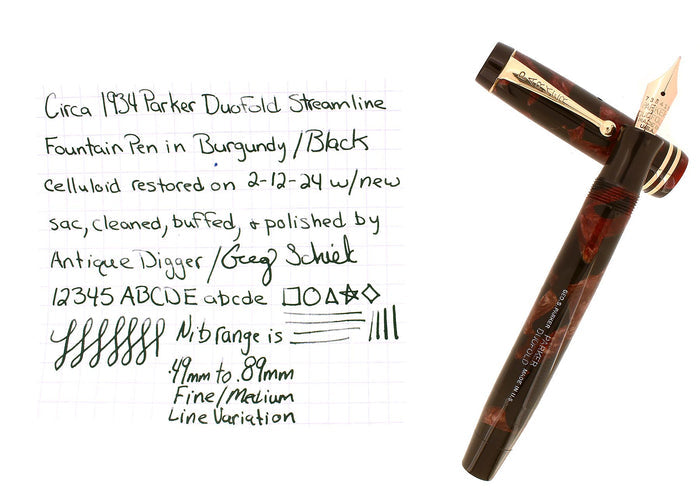 Circa 1934 Parker Duofold Streamline
Fountain Pen in Burgundy/Black
celluloid restored on 2-12-24 w/new
sac, cleaned, buffed, & polished by
Antique Digger/Greg
12345 ABCDE abcde
Nib range is
.49mm to .89mm
Fine/Medium
Line Variation
PARKER
GEO. S. PARKER
PARKER
DUOFOLD MADE IN U.S.